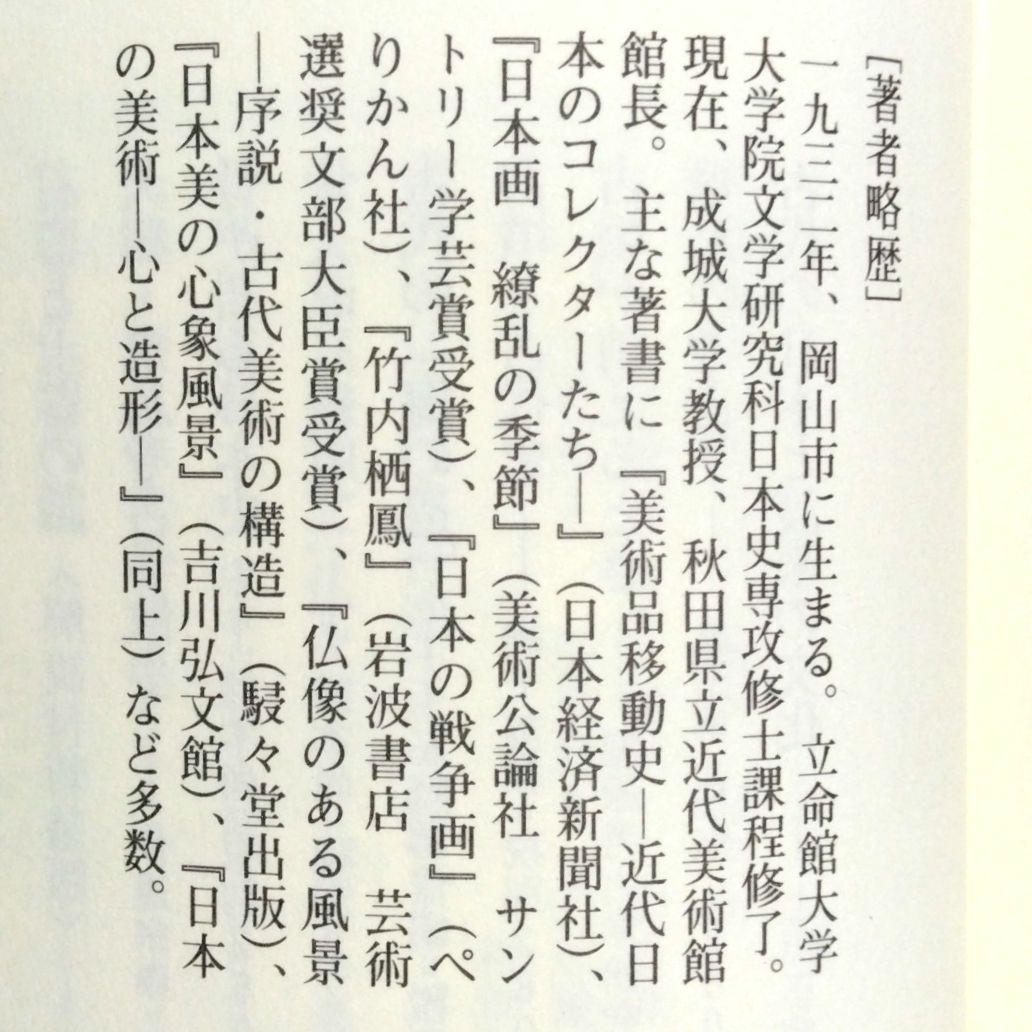 ［著者略歴］
一九三二年、岡山市に生まる。立命館大学
大学院文学研究科日本史専攻修士課程修了。
現在、成城大学教授、秋田県立近代美術館
館長。主な著書に『美術品移動史―近代日
本のコレクターたち―』（日本経済新聞社）、
『日本画　繚乱の季節』（美術公論社　サン
トリー学芸賞受賞）、『日本の戦争画』（ぺ
りかん社）、『竹内栖鳳』（岩波書店　芸術
選奨文部大臣賞受賞）、『仏像のある風景
―序説・古代美術の構造』（駸々堂出版）、
『日本美の心象風景』（吉川弘文館）、『日本
の美術―心と造形―』（同上）など多数。